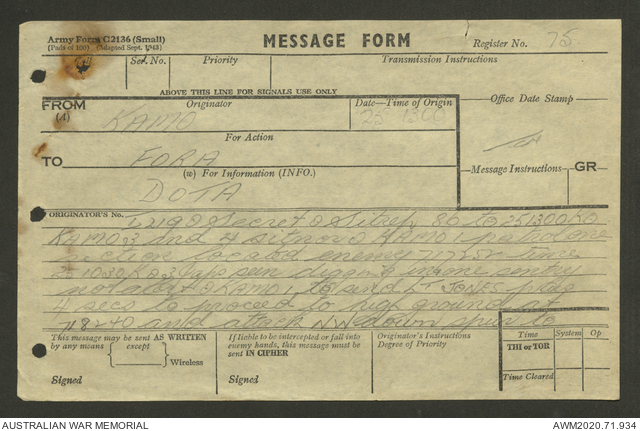 Army Form C2136 (Small)
(Pads of 100) (Adapted Sept. 1943)
MESSAGE FORM
Register No. 75
Ser. No.
Priority
Transmission Instructions
ABOVE THIS LINE FOR SIGNALS USE ONLY
FROM
(A)
Originator
Date—Time of Origin
Office Date Stamp
KAMO
25 1300
For Action
TO
FORA
(w) For Information (INFO.)
Message Instructions
GR
DOTA
ORIGINATOR'S No.
secret Sitrep 86 to 251300K
KAMO 3 and 4 sitnova KAMO 1 patrol one
section located enemy 717252 since
251030K 3 Japs seen digging in one sentry
not alert KAMO 1 to send Lt JONES plus
4 secs to proceed to high ground at
718240 and attack NW down spur to
This message may be sent AS WRITTEN
by any means { except } Wireless
If liable to be intercepted or fall into
enemy hands, this message must be
sent IN CIPHER
Originator's Instructions
Degree of Priority
Time
System
Op
THI or TOR
Time Cleared
Signed
Signed
AUSTRALIAN WAR MEMORIAL
AWM2020.71.934